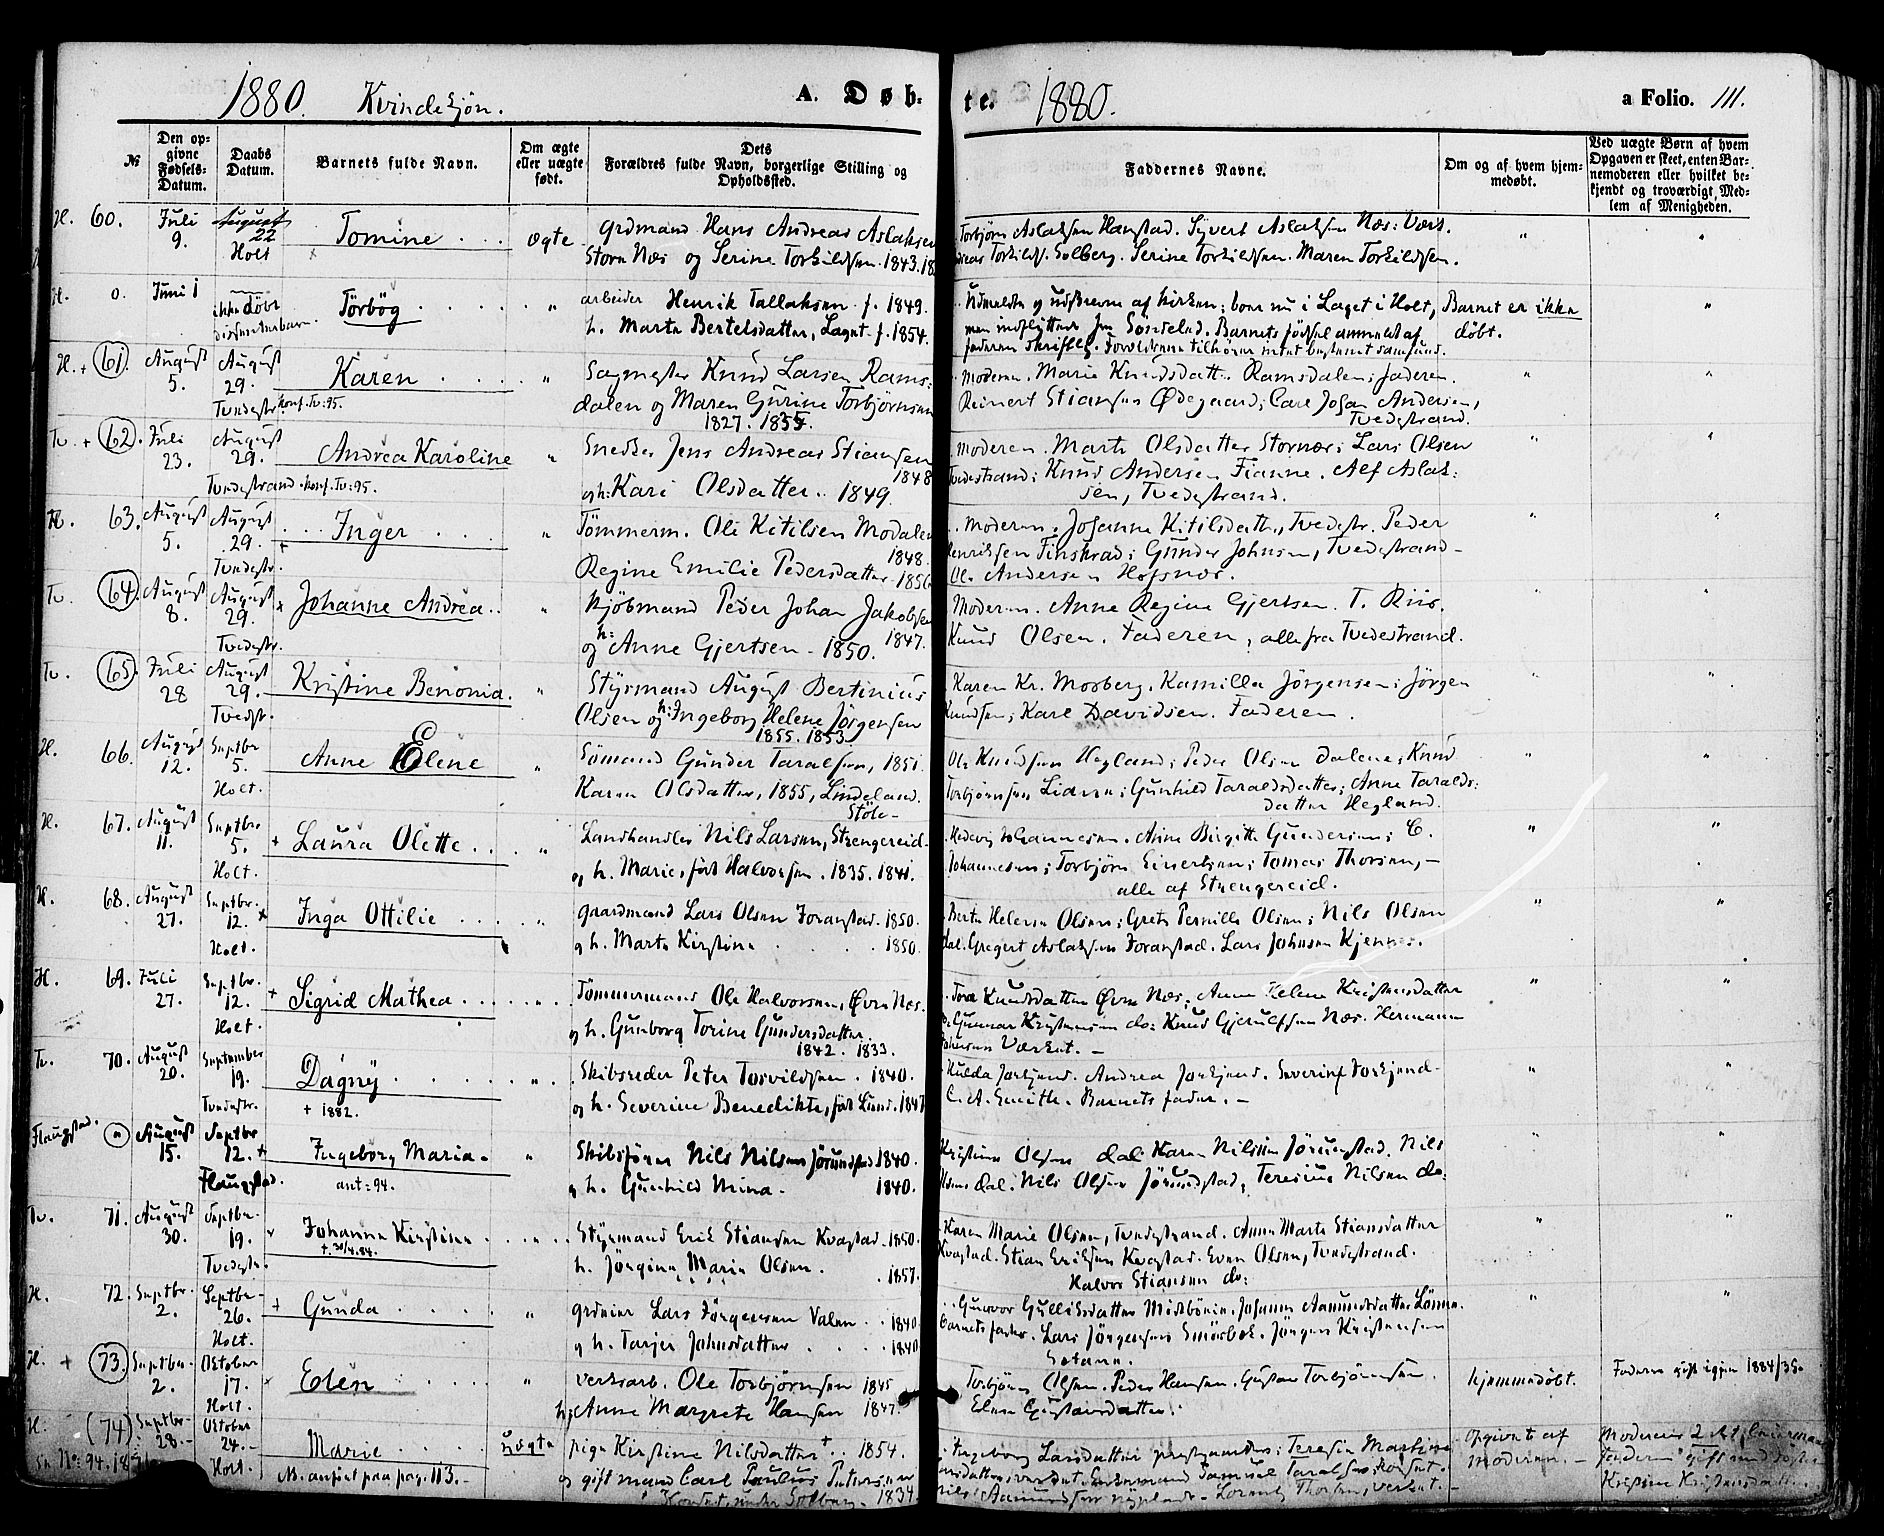 1880. Kvindekjøn. A. Døb-
te. 1880. a Folio. 111.
№
Den op-
givne
Fødsels-
Datum.
Daabs
Datum.
Barnets fulde Navn.
Om ægte
eller uægte
født.
Dets
Forældres fulde Navn, borgerlige Stilling og
Opholdssted.
Faddernes Navne.
Om og af hvem hjem-
medøbt.
Ved uægte Børn af hvem
Opgaven er skeet, enten Bar-
nemoderen eller hvilket be-
kjendt og troværdigt Med-
lem af Menigheden.
H. 60. Juli 9. August 22 Holt Tomine ægte
Grdmand Hans Andreas Aslaksen
Store Næs og Serine Torkildsen. 1843.
Torbjørn Aslaksen Hanstad. Syvert Aslaksen Næs: Værk.
Torkilds. Solberg. Serine Torkildsen. Maren Torkildsen.
H. 0. Juni 1 ikke döbt dissenterbarn. Törbög "
arbeider Henrik Tallaksen f. 1849.
h. Marte Bertelsdatter, Laget f. 1854.
Udmeldte og udskrevne af kirken; bor nu i Laget i Holt,
men indflyttede fra Søndeled. Barnets födsel anmeldt af
faderen skriftlig. Forældrene tilhører intet bestemt samfund.
Barnet er ikke
døbt.
H. + 61. August 5. August 29. Tvedestr. Karen "
konf. Tv: 95.
Sagmester Knud Larsen Rams-
dalen og Maren Gurine Torbjørnsen
1827. 1835.
Moderen. Marie Knudsdatt. Ramsdalen; faderen.
Reinert Stiansen Ødegaard; Carl Johan Andersen,
Tvedestrand.
Tv. + 62. Juli 23. August 29. Andrea Karoline "
Tvedestrand. konf. Tv: 95.
Snedker Jens Andreas Stiansen
1848
og h: Kari Olsdatter. 1849.
Moderen. Marte Olsdatter Stornæs; Lars Olsen
Tvedestrand; Knud Andersen Fianne. Alf Aslak-
sen, Tvedestrand.
H. 63. August 5. August 29. Tvedestr. Inger "
Tömmerm. Ole Kitilsen Modalen
1848.
Regine Emilie Pedersdatter 1850
Moderen. Johanne Kitilsdatt., Tvedestr. Peder
Henriksen Finskrad; Gunder Johnsen, Tvedestrand-
Ole Andersen Hofsnæs.
Tv. 64. August 8. August 29. Tvedestr. Johanne Andrea. "
Kjöbmand Peder Johan Jakobsen
1847.
og h: Anne Gjertsen - 1850.
Moderen. Anne Regine Gjertsen. T. Riis.
Knud Olsen. Faderen, alle fra Tvedestrand.
Tv. 65. Juli 28 August 29. Tvedstr. Kristine Benonia. "
Styrmand August Bertinius
Olsen og h: Ingeborg Helene Jørgensen
1855. 1853
Karen Kr. Mosberg. Kamilla Jörgensen; Jörgen
Knudsen; Karl Davidsen. Faderen.
H. 66. August 12. Septbr 5. Holt. Anne Elene "
Sömand Gunder Taralsen, 1851.
Karen Olsdatter, 1855, Lindeland.
Ole Knudsen Hegland; Peder Olsen Dalene; Knud
Torbjørnsen Lidene; Gunhild Taraldsdatter; Anne Taralds-
datter Hegland.
H. 67. August 11. Septbr 5. Holt. + Laura Olette. "
Støle-
Landhandler Nils Larsen, Strengereid-
og h. Marie, født Halvorsen. 1835. 1841.
Hedevig Johannesen. Anne Birgitte Gundersen; C.
Johannesen; Torbjørn Einertsen; Tomas Thorsen, -
alle af Strengereid.
H. 68. August 27. Septbr. 12. Holt. + Inga Ottilie "
Gaardmand Lars Olsen Foranstad. 1850.
og h. Marte Kirstine 1850.
Berte Helene Olsen; Grete Pernille Olsen; Nils Olsen
dal. Gregert Aslaksen Foranstad. Lars Johnsen Kjennes.
H. 69. Juli 27. Septbr. 12. Holt. + Sigrid Mathea "
Tömmermand Ole Halvorsen, Øvre Næs.
og h. Gunborg Torine Gundersdatter.
1842. 1833.
Tora Knudsdatter Øvre Næs; Anne Helene Kristensdatter
Gunnar Kristensen do: Knud Gjerulfsen Næs. Hermann
Johnsen Værket. -
Tv. 70. August 20. September 19. Tvedestr. Dagny "
+ 1882.
Skibsreder Peter Torvildsen. 1840.
og h. Severine Benedikte, født Lund. 1847
Hulda Forkjend. Andrea Forkjend. Severine Forkjend-
C. A. Smith. Barnets fader. -
Flaugstad. a August 15. Septbr 12. + Flaugstad. Ingeborg Maria "
ant: 94.
Skibsfører Nils Nilsen Jörundstad 1840.
og h. Gunhild Mina. 1840.
Kristine Olsen dal Karen Nilssen Jörunstad. Nils
Olsen dal. Nils Olsen Jörundstad, Teresius Nilsen do.
Tv. 71. August 30. Septbr. 19. Tvedestr. Johanne Kirstine "
+ 30/4. 84.
Styrmand Erik Stiansen Kvastad. 1850.
h. Jörgine Marie Olsen. 1857.
Karen Marie Olsen, Tvedestrand. Anne Marte Stiansdatter
Kvastad. Stian Eriksen Kvastad. Even Olsen, Tvedestrand.
Halvor Stiansen do:
H. 72. Septbr. 2. Septbr 26. Holt. + Gunda "
Grdeier Lars Jörgensen Valen 1840
og h. Tarjer Johnsdatter 1840
Gunvor Gulliksdatter Midtbøen. Johanne Aamundsdatter Lønne.
Barnets fader. Lars Jörgensen Smörbek. Jörgen Kristensen
Gotane.
H. + 73. Septbr. 2. Oktober 17. Holt. Elen "
Verksarb. Ole Torbjørnsen 1845
h: Anne Margrete Hansen 1847.
Torbjörn Olsen. Peder Hansen. Gustav Torbjørnsen.
Elen Gustavsdatter.
hjemmedøbt.
Faderen gift igjen 1884/35.
H. (74) Septbr 28. Oktober 24. Holt. Marie uægte
No: 94. 18
NB. anført paa pag. 113.-
pige Kirstine Nilsdatter + 1854.
og gift mand Carl Paulus Petersen
1834
Ingeborg Larsdatter prestgaarden; Teresie Martine
Enkemand Samuel Taralsen;
Nils Aamundsen nyplads - Lorents Thorsen, verket. -
Opgivet af
moderen. -
Moderens 2det leiermaal
faderen gift med søster
Kristine Kristensdatt.